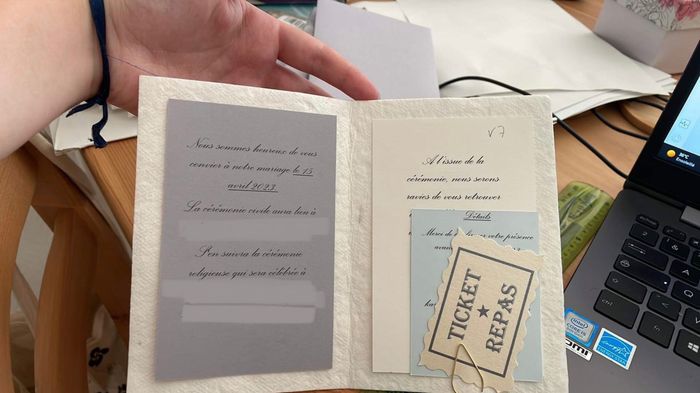 Nous sommes heureux de vous
convier à notre mariage le 15
avril 2023.
La cérémonie civile aura lieu à
Pen suivra la cérémonie
religieuse qui sera célébrée à
A l'issue de la
cérémonie, nous serons
ravies de vous retrouver
Détails
Merci de votre présence
TICKET
REPAS
intel
CORE i5
30°C
Ensoleillé